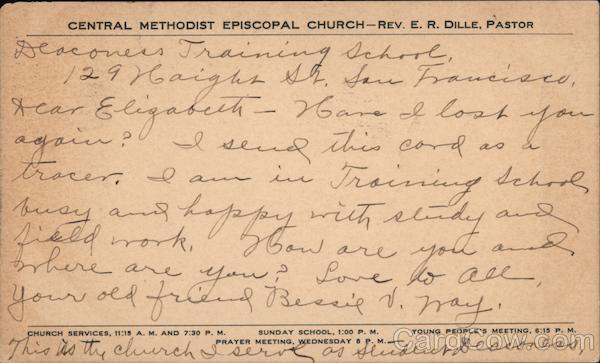 CENTRAL METHODIST EPISCOPAL CHURCH—REV. E. R. DILLE, PASTOR
Deaconess Training School,
129 Haight St. San Francisco.
Dear Elizabeth— Have I lost you
again? I send this card as a
tracer. I am in Training School
busy and happy with study and
field work. How are you and
where are you? Love to All.
Your old friend Bessie V. Way.
CHURCH SERVICES, 11:15 A. M. AND 7:30 P. M. SUNDAY SCHOOL, 1:00 P. M. YOUNG PEOPLE'S MEETING, 6:15 P. M.
PRAYER MEETING, WEDNESDAY 8 P. M.
This is the church I serve as Student Deaconess,
CardCow.com